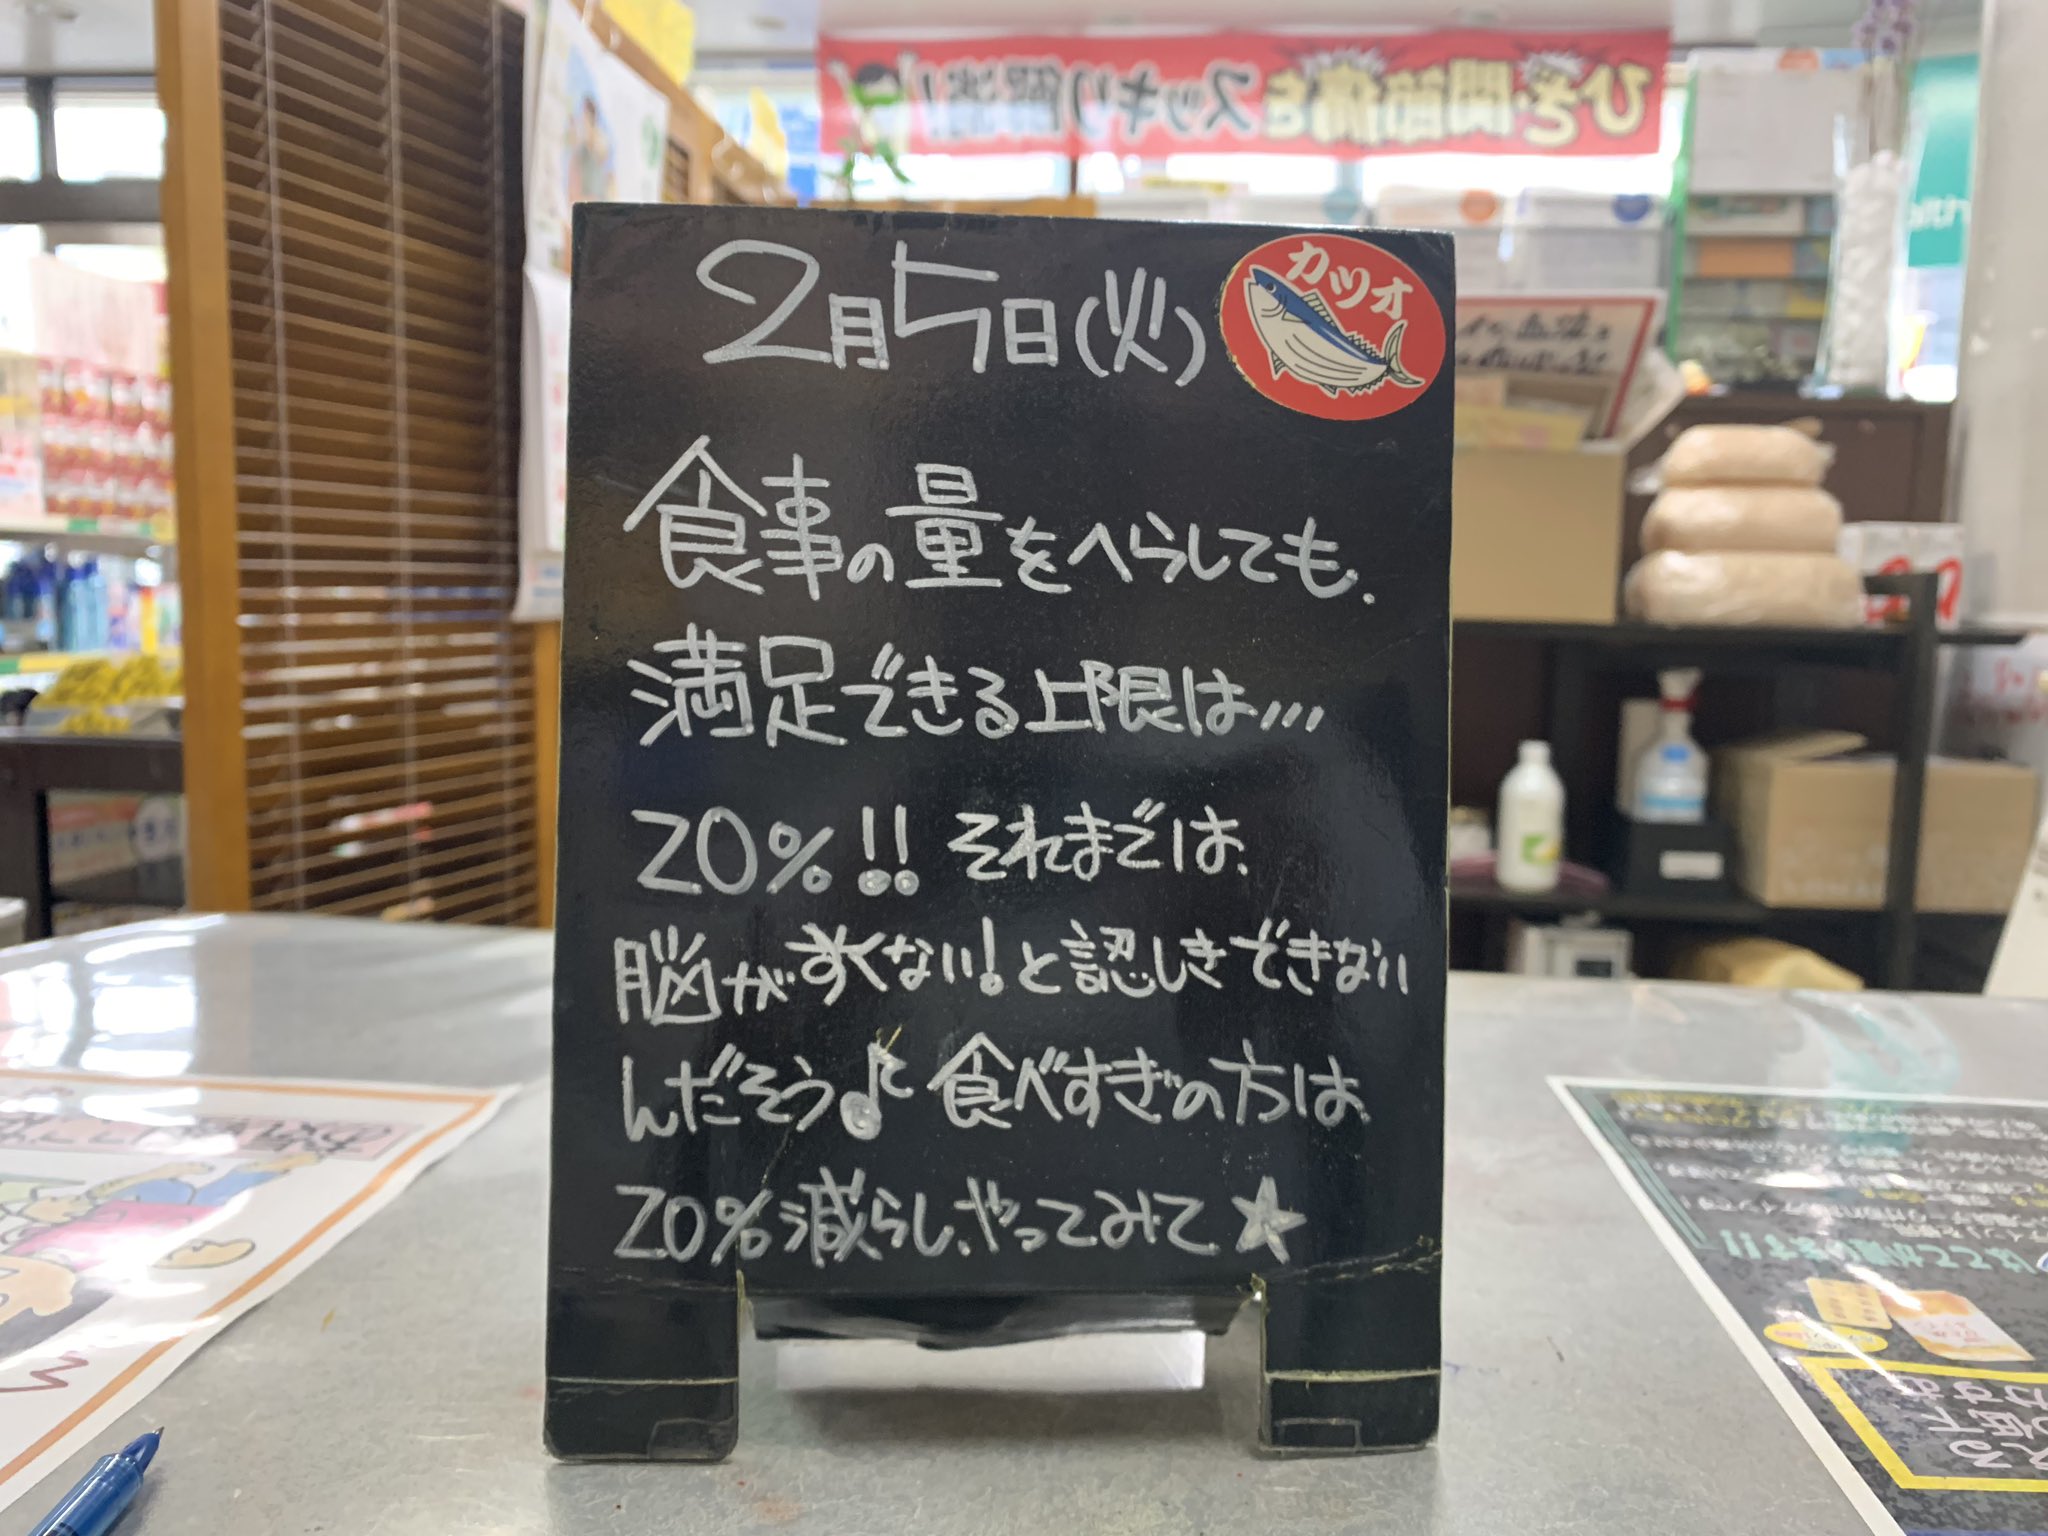 ひざ・関節痛をスッキリ解決!
2月5日(火)
カツオ
食事の量をへらしても、
満足できる上限は…
20%!! それまでは、
脳がすくない!と認しきできない
んだそう♪ 食べすぎの方は、
20%減らし、やってみて★